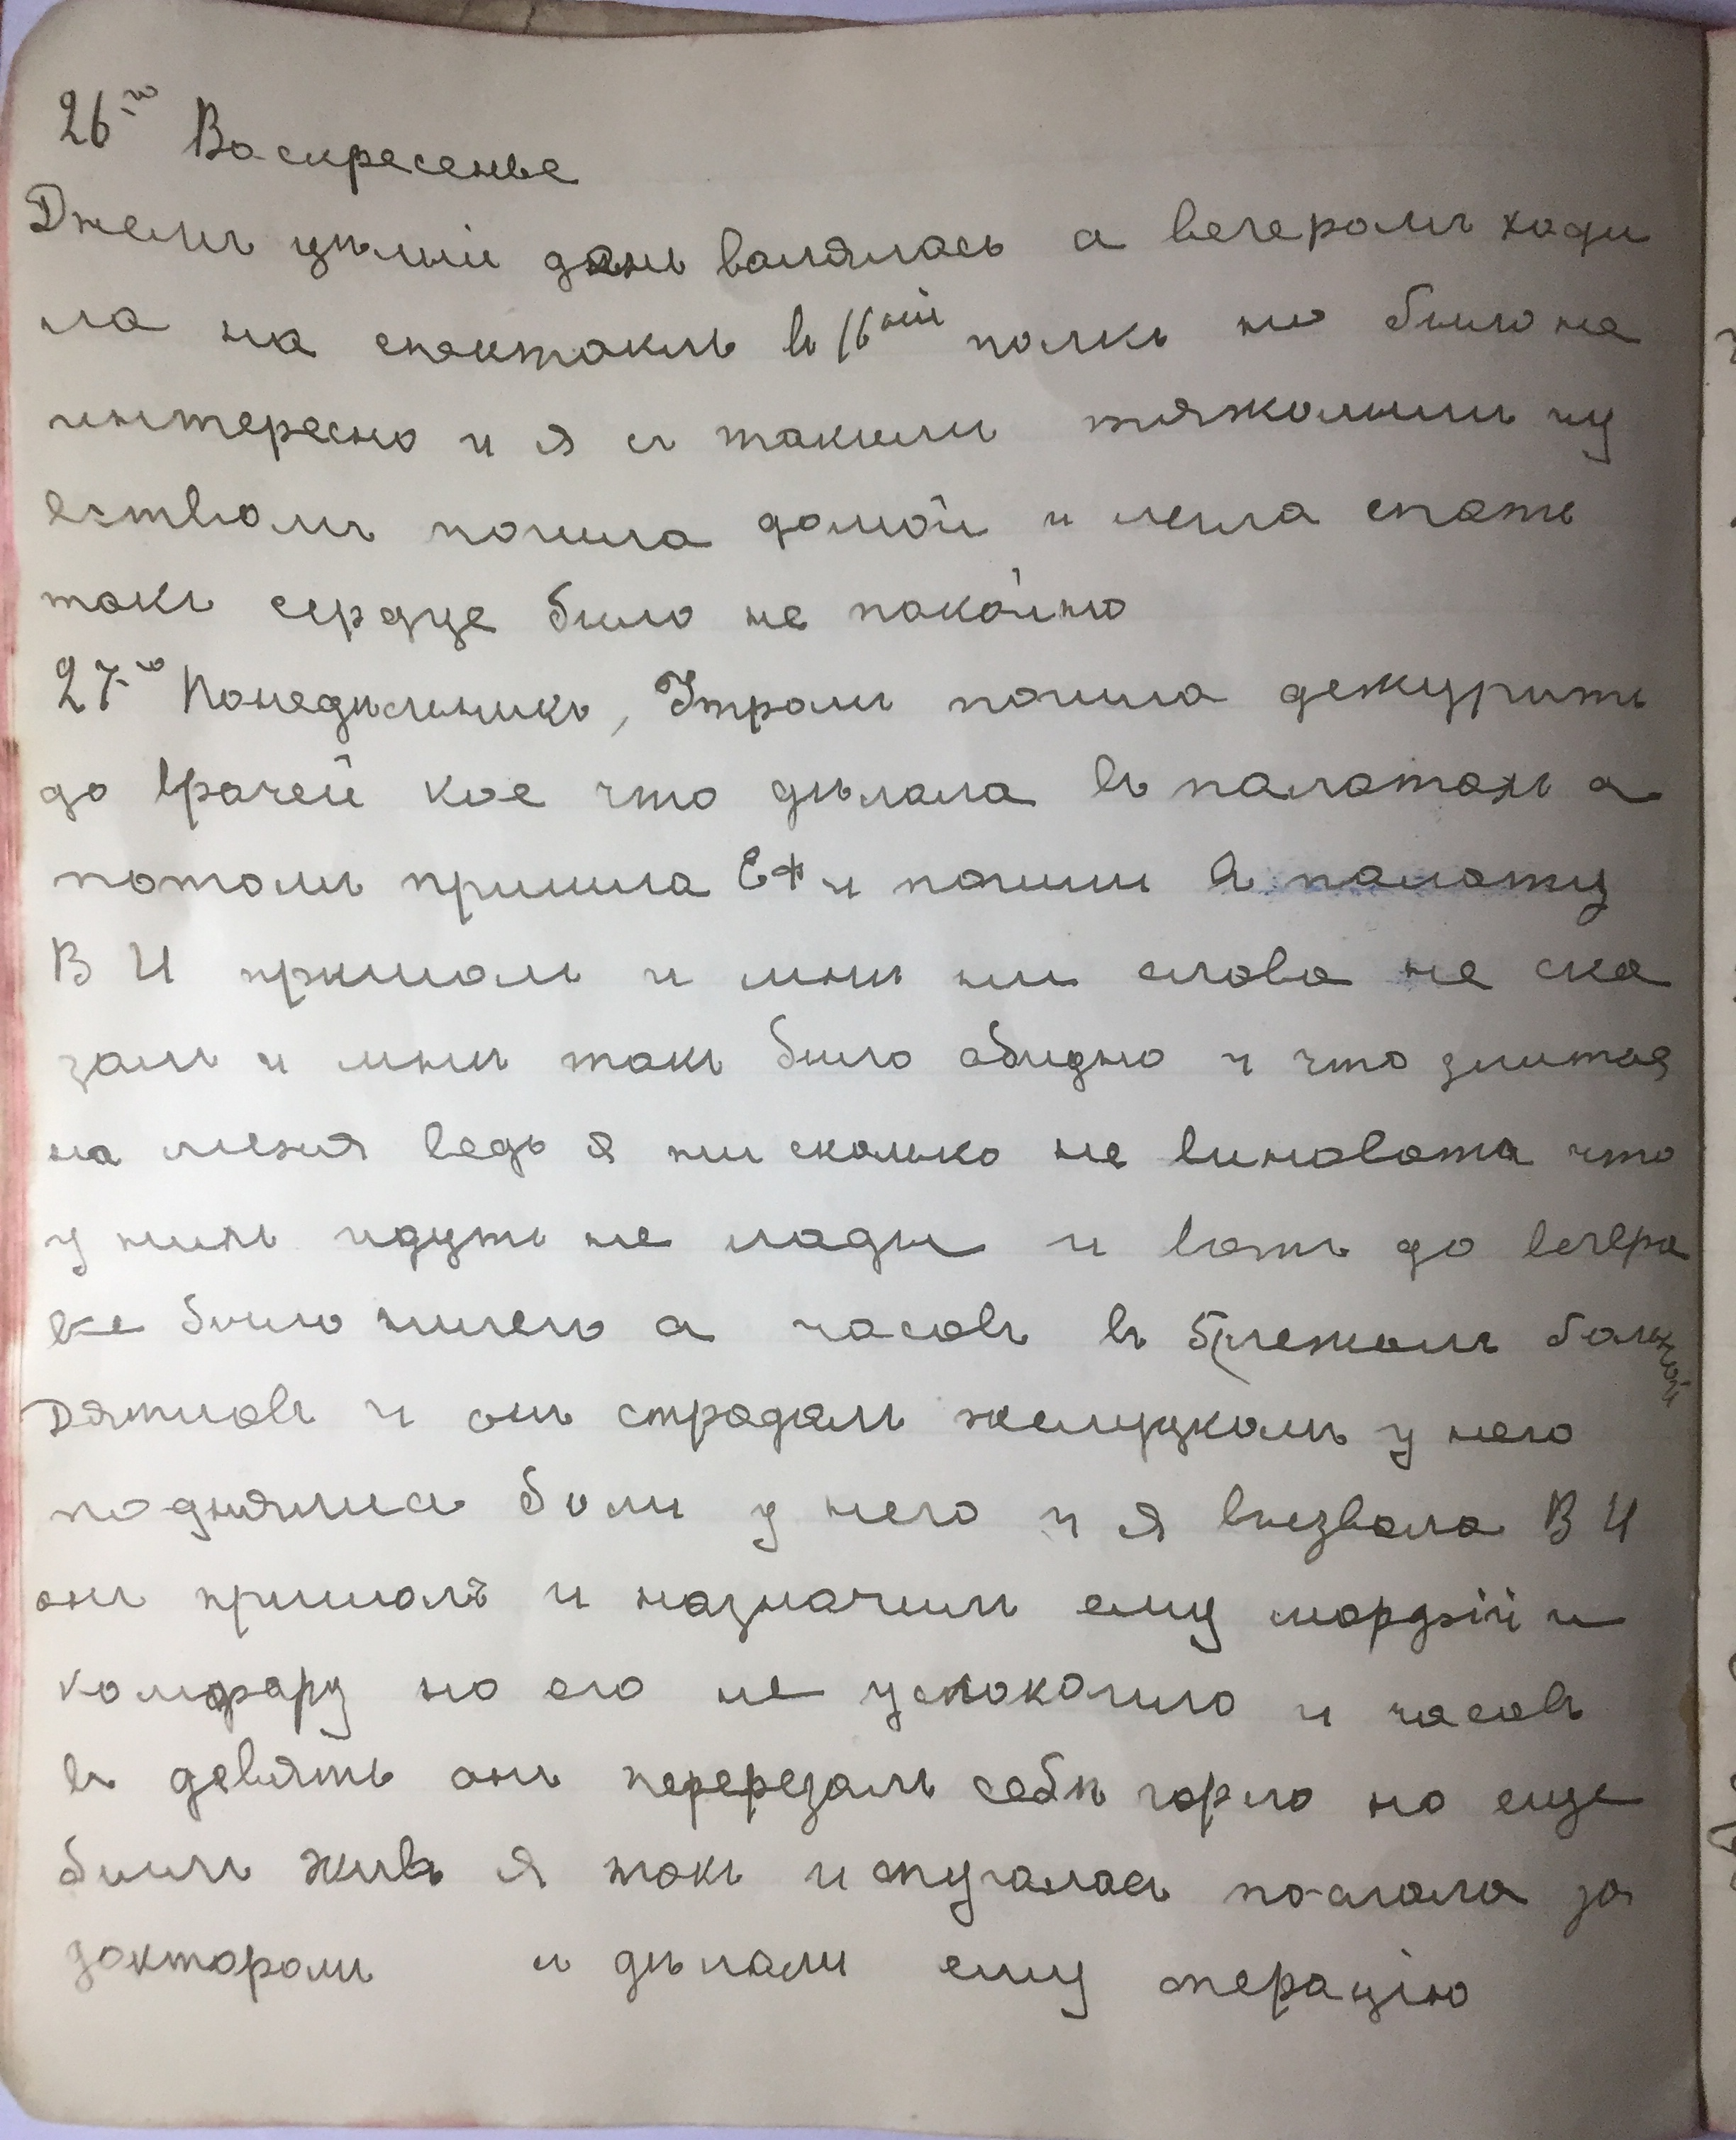 26-го Воскресенье
Днемъ цѣлый день валялась а вечеромъ ходи
ла на спектакль въ 16ный полкъ но было не
интересно и я съ такимъ тяжолымъ чу
вствомъ пошла домой и легла спать
такъ сердце было не покойно
27-го Понедѣльникъ, Утромъ пошла дежурить
до врачей кое что дѣлала въ палатахъ а
потомъ пришла ЕФ и пошли въ палату
В И пришолъ и мнѣ ни слова не ска
залъ и мнѣ такъ было обидно и что злится
на меня ведь я ни сколько не виновата что
у нихъ идутъ не лады и вотъ до вечера
все было ничего а часовъ въ 5 (лежалъ больной
Дятловъ и онъ страдалъ желудкомъ у него
поднялись боли у него и я вызвала В И
онъ пришолъ и назначилъ ему морфій и
комфару но его не успокоило и часовъ
въ девять онъ перерезалъ себѣ горло но еще
былъ живъ я такъ испугалась послала за
докторомъ и дѣлали ему операцію